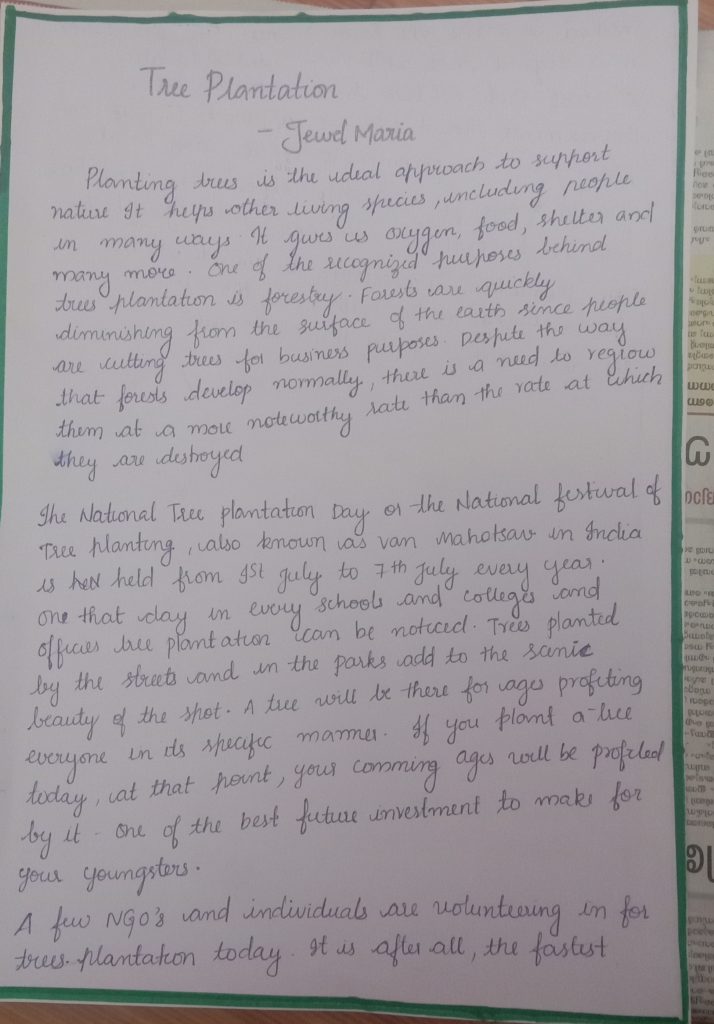 Tree Plantation
- Jewel Maria
Planting trees is the ideal approach to support
nature It helps other living species, including people
in many ways. It gives us oxygen, food, shelter and
many more. One of the recognized purposes behind
trees plantation is forestry. Forests are quickly
diminishing from the surface of the earth since people
are cutting trees for business purposes. Despite the way
that forests develop normally, there is a need to regrow
them at a more noteworthy rate than the rate at which
they are destroyed
The National Tree plantation Day or the National festival of
Tree Planting, also known as van Mahotsav in India
is held from 1st July to 7th July every year.
One that day in every schools and colleges and
offices tree plantation can be noticed. Trees planted
by the streets and in the parks add to the scenic
beauty of the spot. A tree will be there for ages profiting
everyone in its specific manner. If you plant a tree
today, at that point, your comming ages will be profited
by it. One of the best future investment to make for
your youngsters.
A few NGO's and individuals are volunteering in for
trees plantation today. It is after all, the fastest